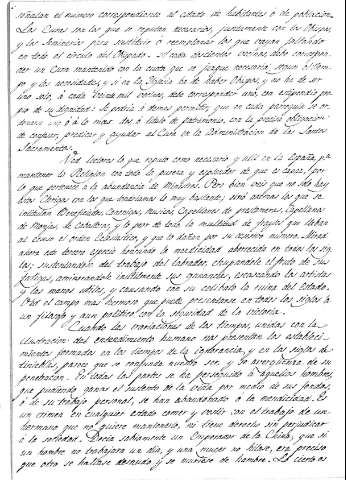 señalan el numero correspondiente al estado de habitantes ó de población.
Los Curas son los que se reputan necesarios, juntamente con los Obispos,
y los Seminarios para sustituir ó reemplazar los que vayan faltando
en todo el círculo del Obispado. A cada doscientos vecinos debe correspon-
der un Cura mantenido con la cuota que se juzgue necesaria, segun el tiem-
po y las necesidades; y si en la Iglesia ha de haber Obispos, y no ha de ser
uno solo, á cada veinte mil vecinos, debe corresponder uno, con estipendio pro-
pio de su dignidad: Se podria á demas permitir, que en cada parroquia se or-
denara uno ó á lo mas dos á titulo de patrimonio, con la precisa obligacion
de confesar, predicar y ayudar al Cura en la administracion de los Santos
Sacramentos.
Ved lectores lo que reputo como necesario y util en la España, pª
mantener la Religion con toda la pureza y esplendor de que es capaz, por
lo que pertenece á la abundancia de Ministros. Pero bien veis que no solo hay
estos Clerigos con los que tendriamos lo muy bastante, sinó ademas los que se
intitulan Beneficiados, Canonigos, Musicos, Capellanes de prestameras, Capellanes
de Monjas, de Caballeros, y lo peor de todo la multitud de frayles que llaman
al censo el orden Eclesiastico, y que lo dañan por su excesivo numero. Mirad
ahora esta tercera especie destinada á mendicidad aborrecida en todos los si-
glos, sustentandose del trabajo del labrador, chupandole el fruto de sus
fatigas, aminorandole inutilmente sus ganancias, escaseando los artistas
y las manos utiles, y causando con su celibato la ruina del Estado.
Ved el campo mas hermoso que puede presentarse en todos los siglos á
un filosofo y aun politico con la seguridad de la victoria.
Cuando las variaciones de los tiempos, unidas con la
ilustracion del entendimiento humano nos presentan los estableci-
mientos formados en los tiempos de la ignorancia, y en los siglos de
tinieblas, parece que se confunde nuestro ser, y se averguenza de su
penetracion. En todas las partes se ha perseguido á aquellos hombres,
que pudiendo ganar el sustento de la vida por medio de sus fondos,
ó de su trabajo personal, se han abandonado á la mendicidad. Es
un crimen en cualquier estado comer y vestir con el trabajo de un
hermano que no quiere mantenerlo, ni tiene derecho sin perjudicar
á la sociedad. Decia sabiamente un Emperador de la China, que si
un hombre no trabajara un dia, y una muger no hilase, era preciso
que otro se hallase desnudo, y se muriese de hambre. Lo cierto es